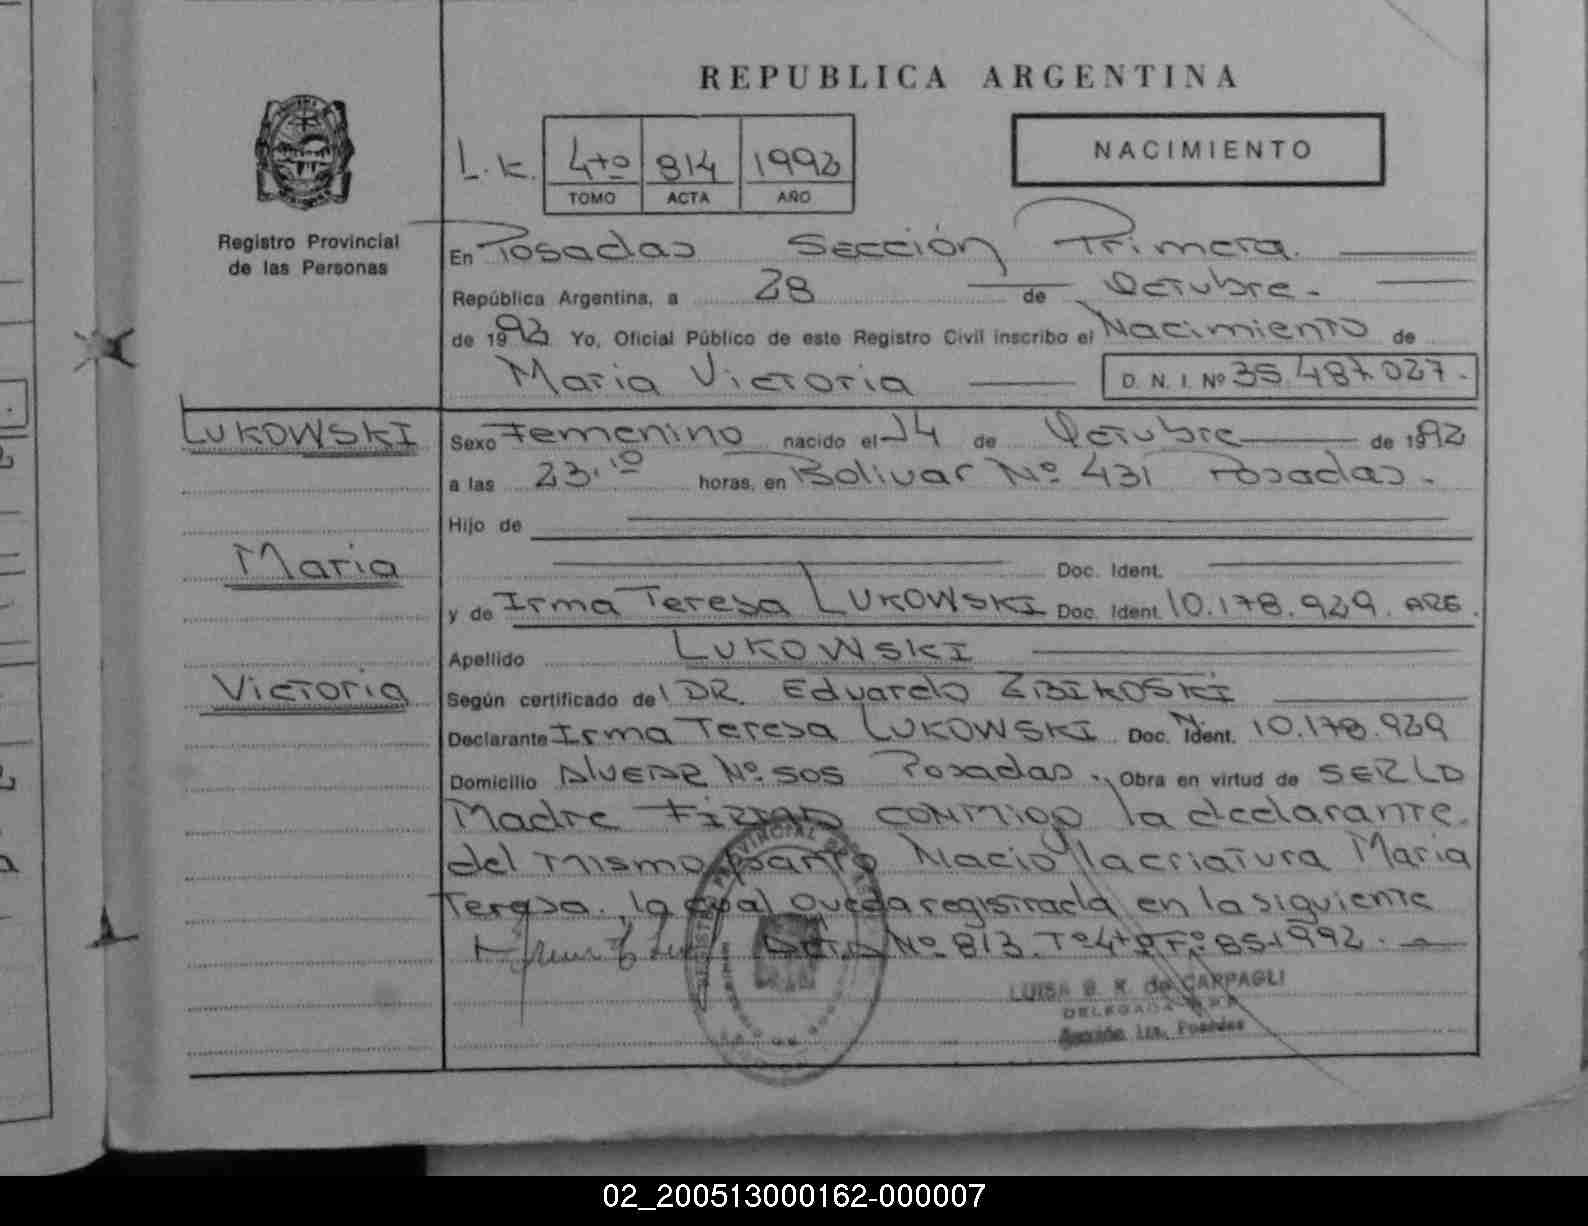 REPUBLICA ARGENTINA
NACIMIENTO
L.K. 4to 814 1992
TOMO ACTA AÑO
Registro Provincial
de las Personas
En Posadas Sección Primera.
República Argentina, a 28 de Octubre.
de 1992 Yo, Oficial Público de este Registro Civil inscribo el Nacimiento de
Maria Victoria D. N. I. Nº 35.487.027.
LUKOWSKI
Sexo Femenino nacido el 14 de Octubre de 1992
a las 23.10 horas, en Bolivar Nº 431 Posadas.
Hijo de
Maria
Doc. Ident.
y de Irma Teresa LUKOWSKI Doc. Ident. 10.178.929. ARG.
Apellido LUKOWSKI
Victoria
Según certificado de DR. Eduardo ZBIKOSKI
Declarante Irma Teresa LUKOWSKI Doc. Ident. 10.178.929
Domicilio Alvear Nº 505 Posadas. Obra en virtud de SER LA
Madre FIRMA CONMIGO la declarante.
del mismo parto Nacio la criatura Maria
Teresa. la cual queda registrada en la siguiente
Acta Nº 813. Tº 4to Fº 85-1992.
REGISTRO PROVINCIAL DE LAS
LUISA B. K. de CARPAGLI
DELEGADA
Sección 1ra. Posadas
02_200513000162-000007